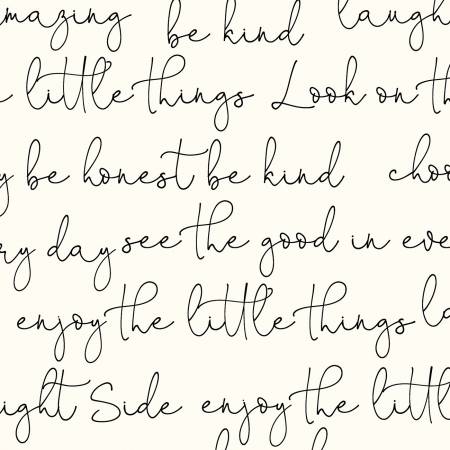 mazing be kind laugh
little things Look on th
y be honest be kind choo
ry day see the good in eve
enjoy the little things la
ight Side enjoy the littl